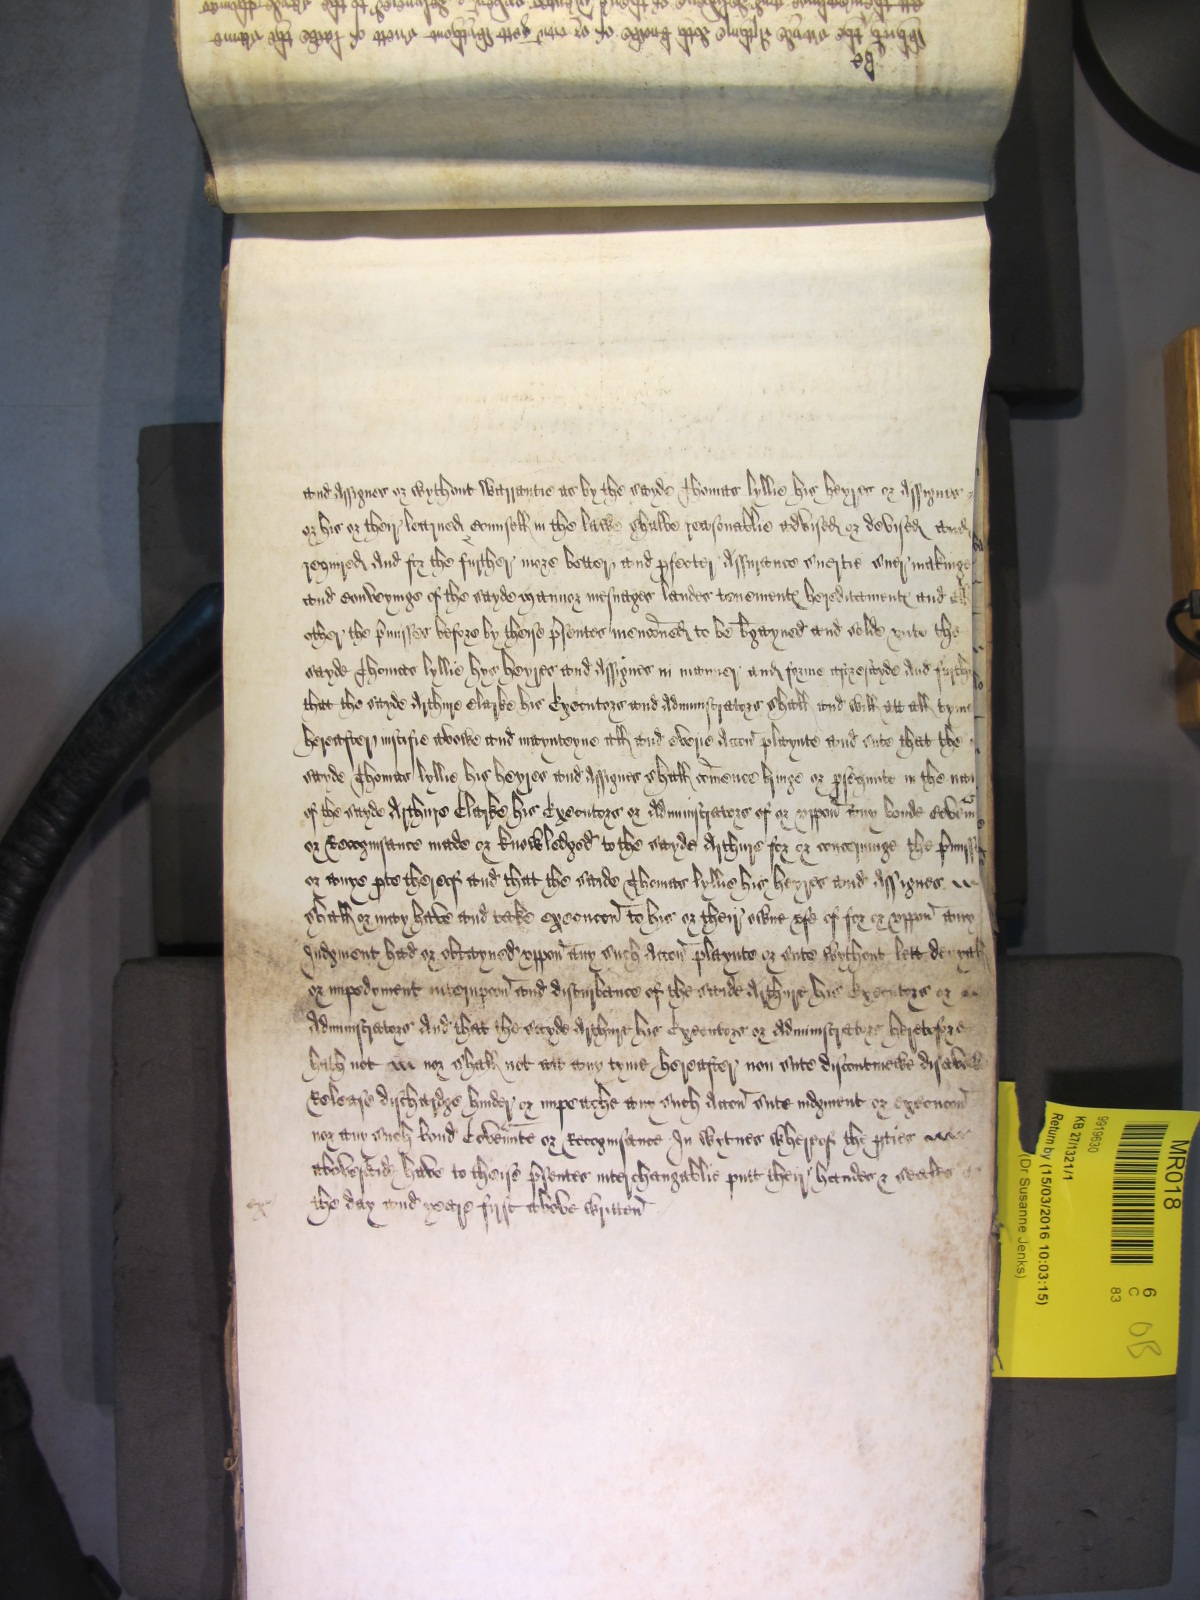 and Assignes or wythout Warrantie as by the sayde Thomas lyllie his heyres or Assignes
or his or their learned counsell in the lawe shalbe reasonablie advised or devised and
required And for the further more better and pfecter Assurance suertie suer makinge
and conveyinge of the sayde mannor mesuages landes tenement hereditament and all
other the pmisses before by theise psentes mencõned to be bgayned and solde vnto the
sayde Thomas lyllie hys heyres and Assignes in manner and forme aforesayde And further
that the sayde Arthure Clarke his Executors and Administrators shall and will at all tyme
hereafter iustifie avowe and maynteyne all and everie Accon playnte and sute that the
sayde Thomas lyllie his heyres and Assignes shall cõmence bringe or psequute in the
of the sayde Arthure Clarke his Executors or Administrators of or vppon any bonde
or Recognisance made or knowledged to the sayde Arthure for or concerninge the
or anye pte thereof and that the saide Thomas lyllie his heyres and Assignes
shall or may have and take execucon to his or their owne vse of for or vppon any
Iudgment had or obtayned vppon any such Accon playnte or sute wythout lett denyall
or impedyment interupcon and disturbance of the saide Arthure his Executors or
Administrators And that the sayde Arthure his Executors or Administrators heretofore
hath not nor shall not at any tyme hereafter non sute discontinewe disavowe
Release discharge hinder or impeache any such Accon sute iudgment or execucon
nor any such bond Covennte or Recognisance In wytnes whereof the pties
abovesaid have to theise psentes interchangablie putt their handes & seales
the day and yeare first above written
Be
MR018
9919630
KB 27/1321/1
Return by (15/03/2016 10:03:15)
(Dr Susanne Jenks)
6
C
83
OB